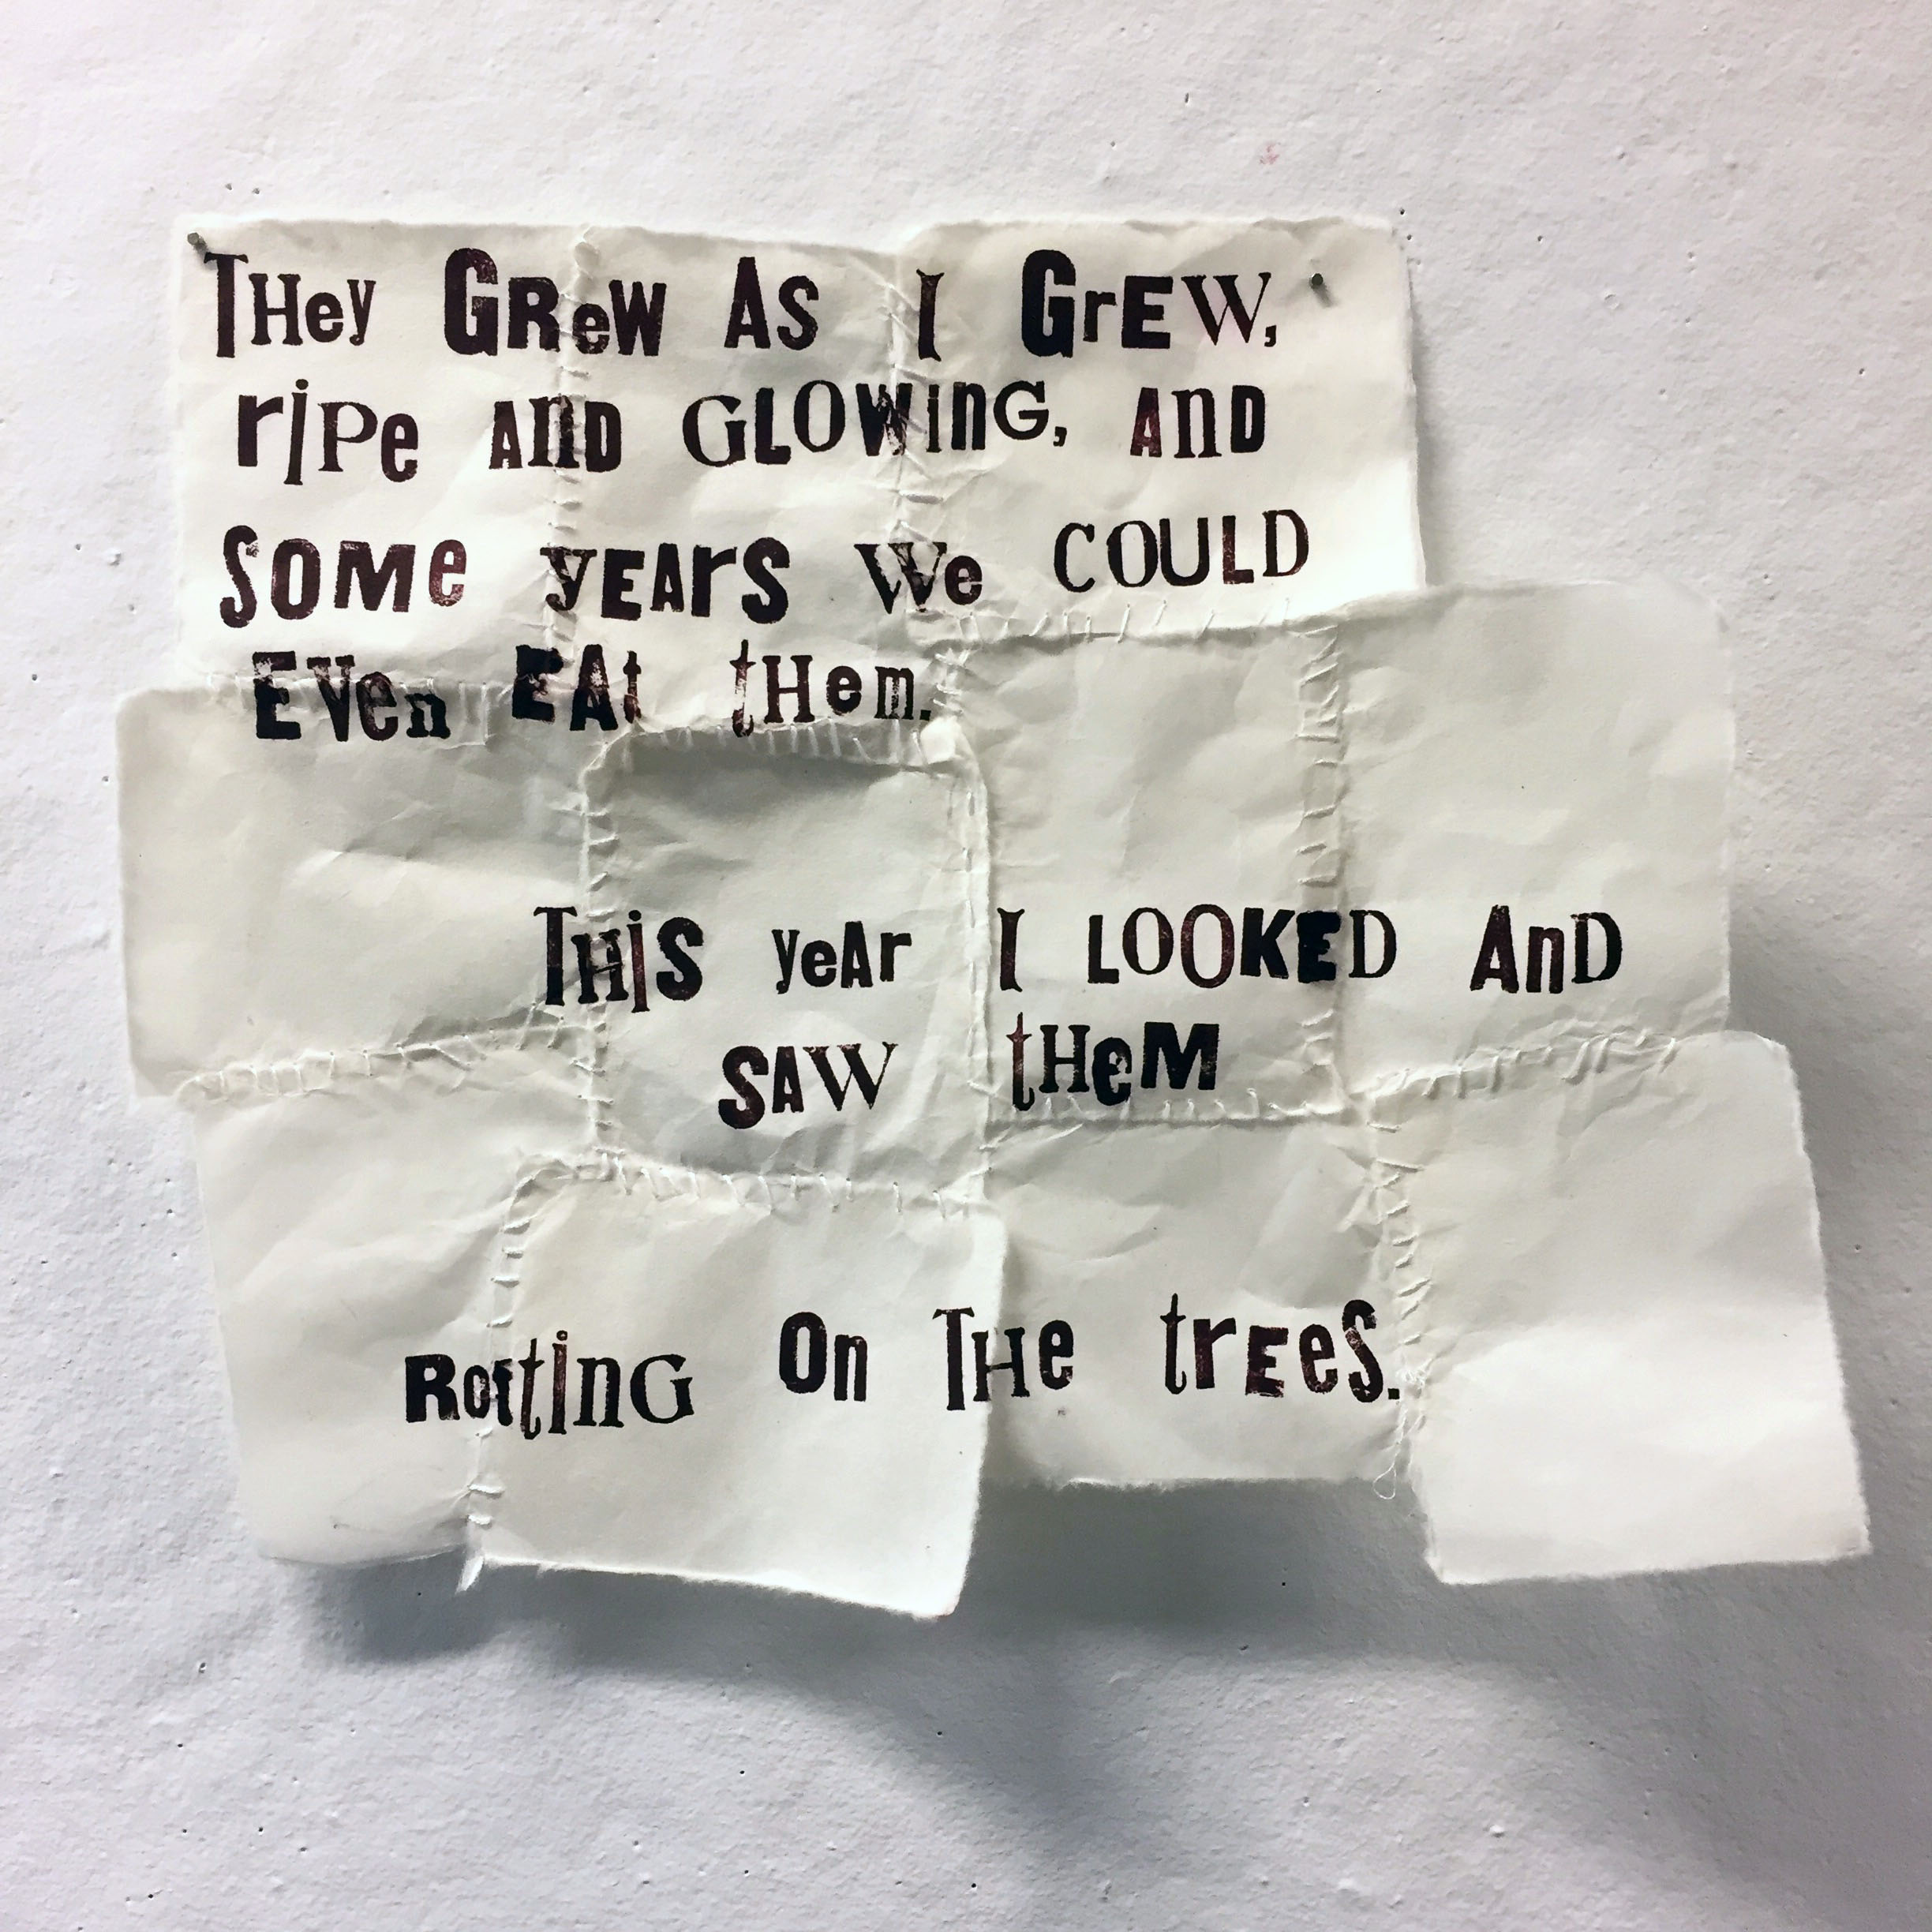 THey GReW AS I GrEW,
riPe AnD GLOWinG, AnD
SOMe yEArS We COULD
EVen EAt tHem.
THiS yeAr I LOOKED AnD
SAW tHeM
RottinG On THe trEeS.